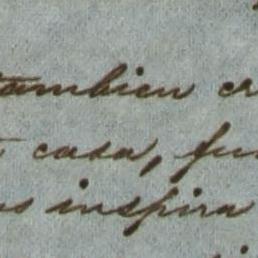 tambien cr
casa, fu
inspira